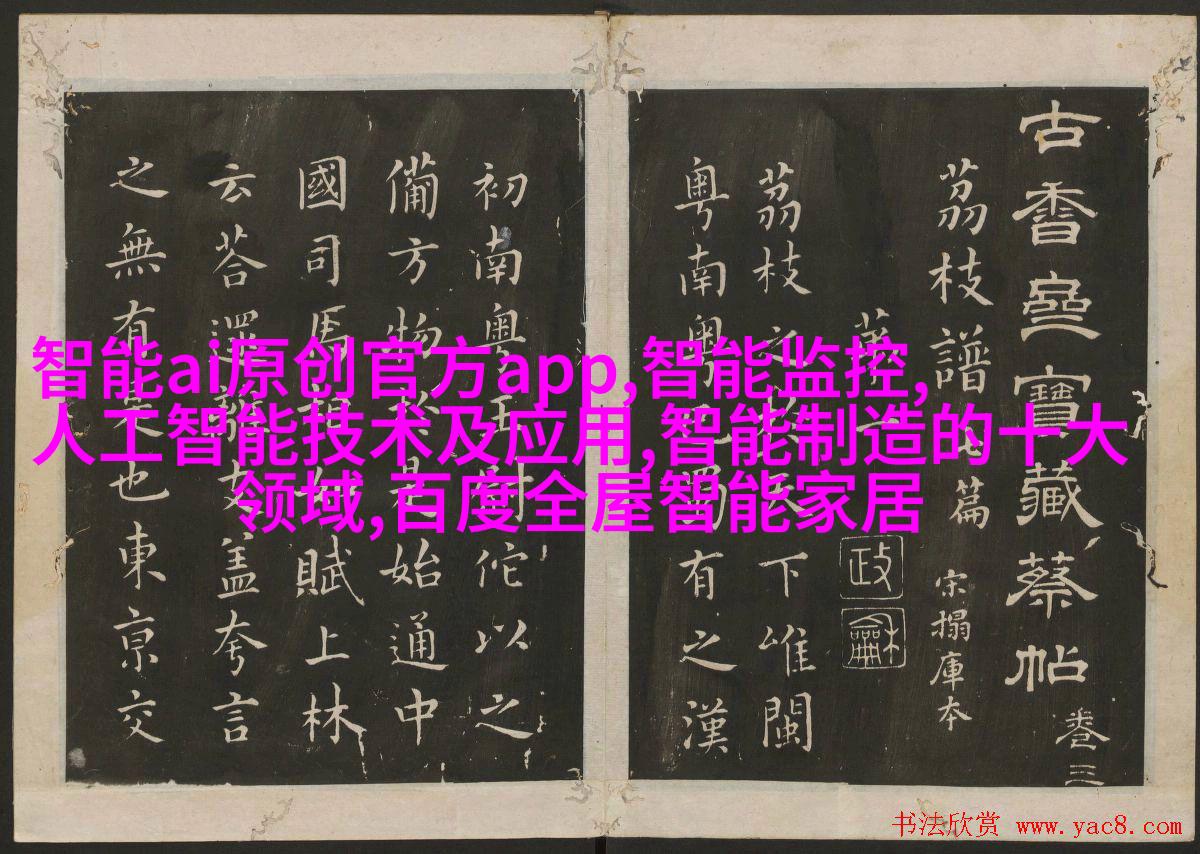 智能ai原创官方app,智能监控,
人工智能技术及应用,智能制造的十大
领域,百度全屋智能家居
古香齋寶藏蔡帖 卷三
荔枝譜七篇 宋搨庫本
第一
政龢
荔枝之於天下唯閩
粤南粤巴蜀有之漢
初南粤王尉佗以之
備方物於是始通中
國司馬相如賦上林
云荅遝離支盖夸言
之無有是也東京交
书法欣赏 www.yac8.com